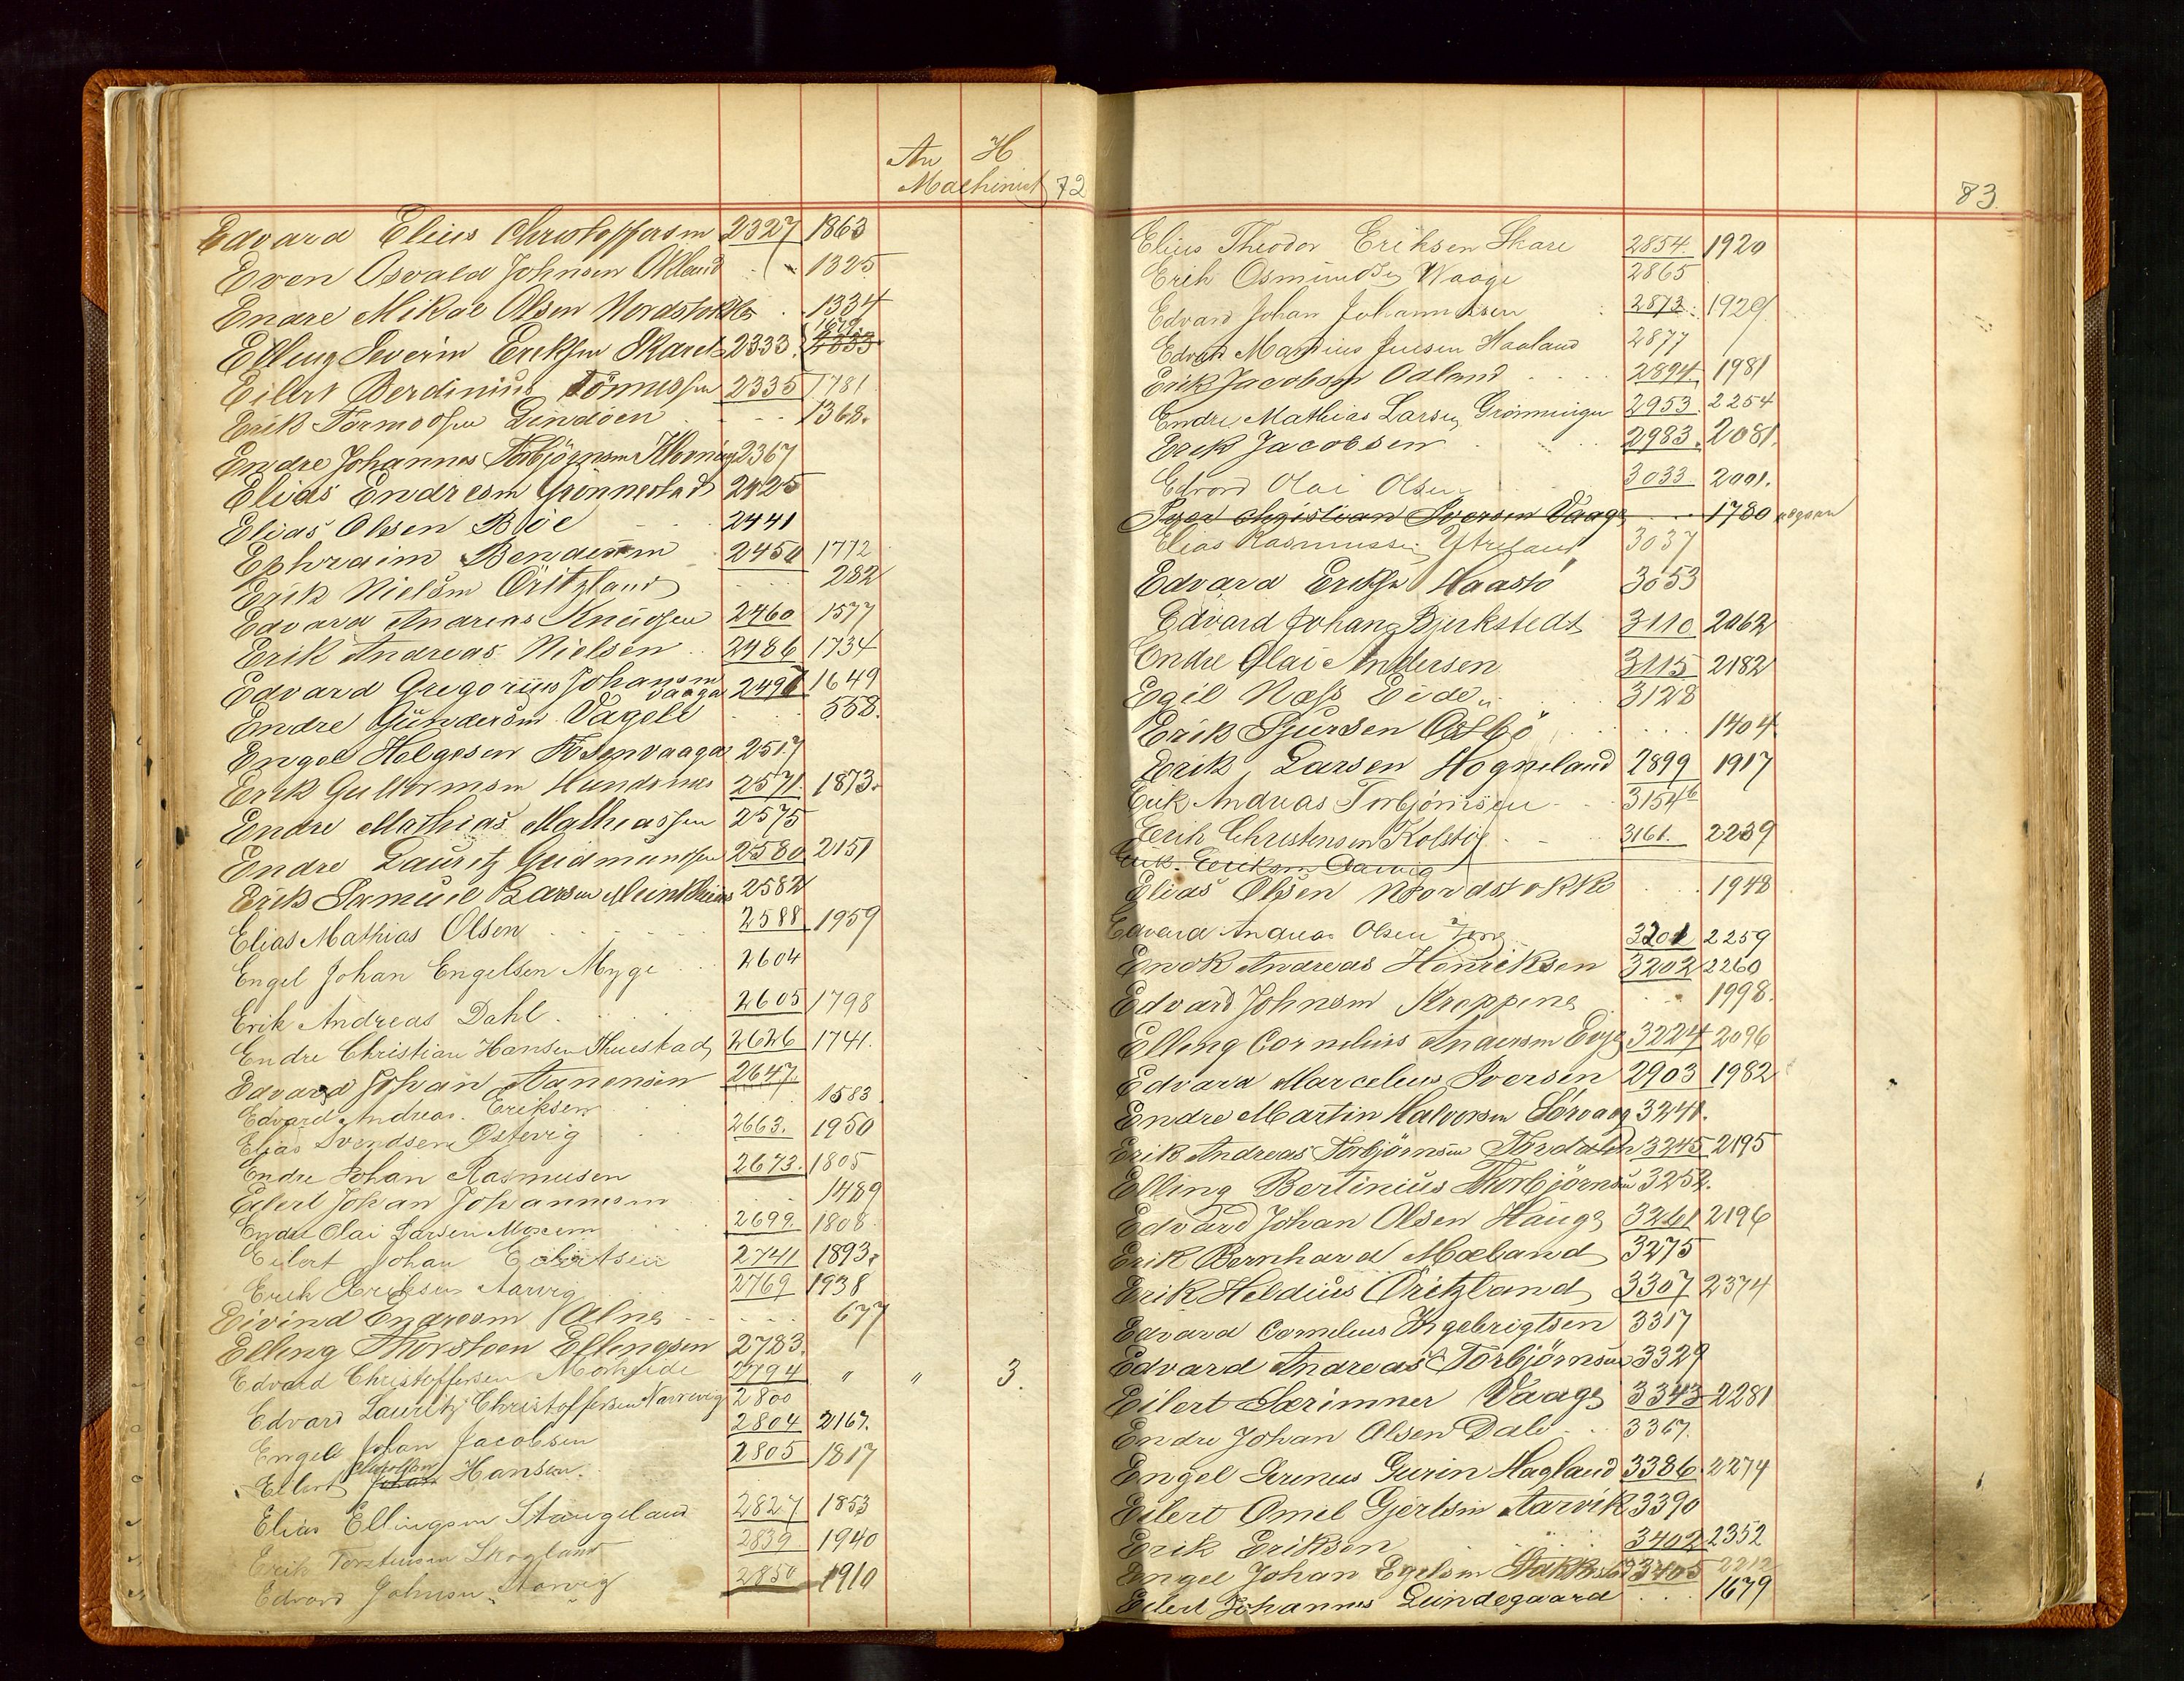 An H
Machinist 72
Edvard Elius Christoffersen 2327 1863
Even Osvald Johnsen Økland 1325
Endre Mikal Olsen Nordstokke 1334
Elling Severin Eriksen Skare 2333 1679 2333
Eilert Berdinius Tönnessen 2335 1781
Erik Tormodsen Lindöen 1368.
Endre Johannes Torbjörnsen 2367
Elias Endresen Grönnestad 2425
Elias Olsen Böe 2441
Ephraim Bendixen 2450 1772
Erik Nielsen Öritzland 282
Edvard Andreas Knudsen 2460 1577
Erik Andreas Nielsen 2486 1734
Edvard Gregorius Johansen Vaaga 2491 1649
Endre Gundersen Vagell 558.
Engel Helgesen Fosenvaagen 2517
Erik Guttormsen Hundsnes 2571. 1873.
Endre Mathias Mathiassen 2575
Endre Lauritz Gudmundsen 2580 2151
Erik Samuel Larsen 2582
Elias Mathias Olsen 2588 1959
Engel Johan Engelsen Myge 2604
Erik Andreas Dahl 2605 1798
Endre Christian Hansen Thuestad 2626 1741.
Edvard Johan Aanensen 2647.
Edvard Andreas Eriksen 1583
Elias Svendsen Östevig 2663. 1950
Endre Johan Rasmusen 2673. 1805
Eilert Johan Johannesen 1489
Endre Olai Larsen 2699 1808
Eilert Johan Eilertsen 2741 1893.
Erik Eriksen Aarvig 2769 1938
Eivind Endresen Alne 677
Elling Thorsteen Ellingsen 2783.
Edvard Christoffersen Mørkeide 2794 " " 3
Edvard Lauritz Christoffersen Narrevig 2800
Engel Johan Jacobsen 2804 2167.
Eilert Johan Hansen. 2805 1817
Elias Ellingsen Stangeland 2827 1853
Erik Torstensen Skogland 2839 1940
Edvard Johnsen Aarvig 2850 1910
83
Elius Theodor Eriksen Skare 2854 1920
Erik Osmundsen Waage 2865
Edvard Johan Johannessen 2873 1929
Edvard Martius Jensen Haaland 2877
Erik Jacobsen Odland 2894 1981
Endre Mathias Larsen Grönningen 2953 2254
Erik Jacobsen 2983. 2081.
Edvard Olai Olsen 3033 2001.
Iver Christian Iversen Vaage 1780
Elias Rasmussen Ytreland 3037
Edvard Eriksen Haastö 3053
Edvard Johan Bjerkstedt 3110 2062
Endre Olai Andersen 3115 2182
Egil Næss Eide 3128
Erik Sjursen Østbö 1404
Erik Larsen Hogneland 2899 1917
Erik Andreas Torbjörnsen 3154 b
Erik Christensen Kolstø 3161. 2239
Erik Eriksen Aarvig
Elias Olsen Nordstokke 1948
Edvard Andreas Olsen 3201 2259
Enok Andreas Henriksen 3202 2260
Edvard Johnsen Kroppene 1998.
Elling Cornelius Andersen Evje 3224 2096
Edvard Marcelius Iversen 2903 1982
Endre Martin Halvorsen Sörvaag 3241.
Erik Andreas Torbjörnsen 3245 2195
Elling Bertinius Thorbjörnsen 3252.
Edvard Johan Olsen Hauge 3261 2196
Erik Bernhard Mæland 3275
Erik Heldius Öritzland 3307 2374
Edvard Cornelius Ingebrigtsen 3317
Edvard Andreas Torbjörnsen 3329
Eilert Særimner Vaage 3343 2281
Endre Johan Olsen Dale 3367.
Engel Serinus Gurin Hagland 3386. 2274
Eilert Omel Gjertsen Aarvik 3390
Erik Eriksen 3402 2352
Engel Johan Egelsen Stakkestad 3405 2212
Eilert Johannes Lundegaard 1679